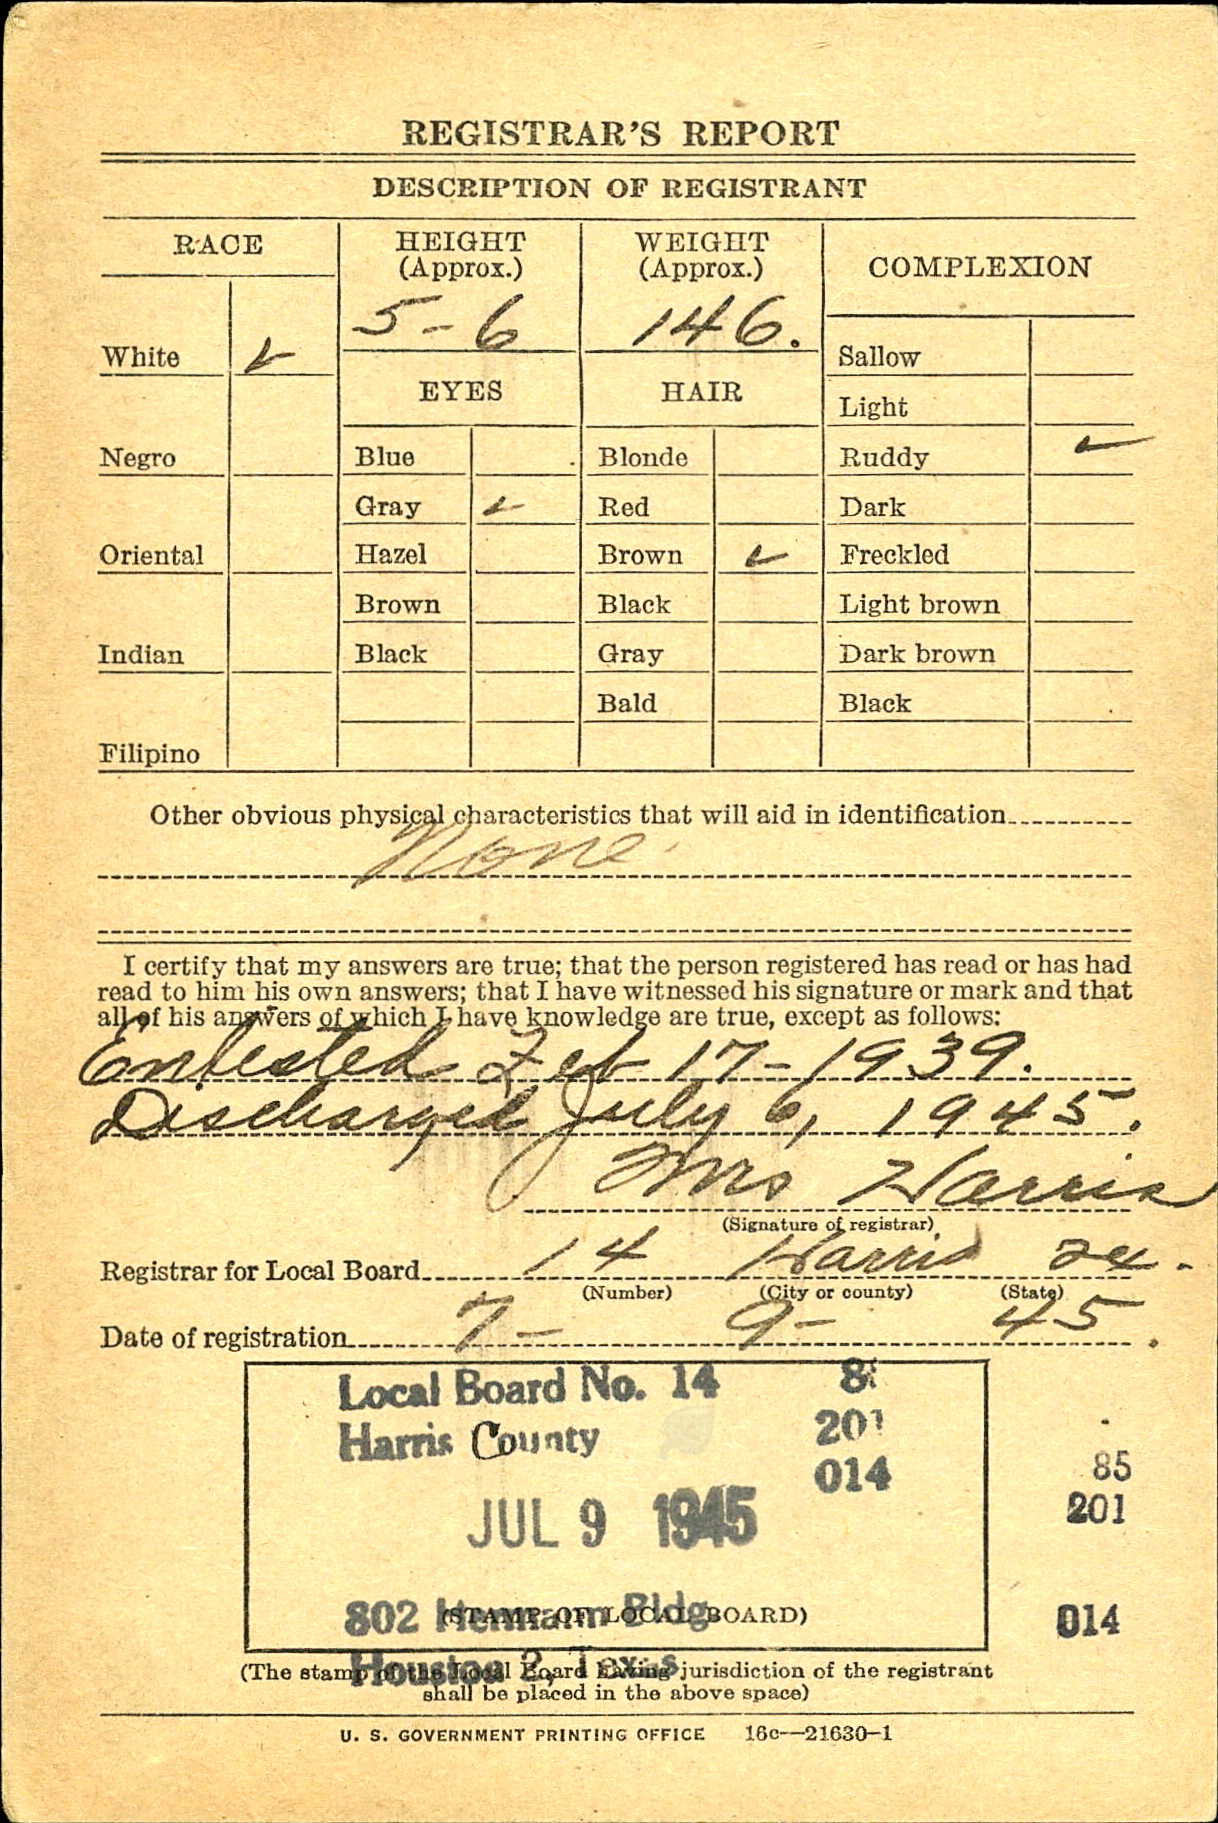 REGISTRAR'S REPORT
DESCRIPTION OF REGISTRANT
RACE
HEIGHT
(Approx.)
WEIGHT
(Approx.)
COMPLEXION
5-6
146.
White ✓
Sallow
EYES
HAIR
Light
Negro
Blue
Blonde
Ruddy ✓
Gray ✓
Red
Dark
Oriental
Hazel
Brown ✓
Freckled
Brown
Black
Light brown
Indian
Black
Gray
Dark brown
Bald
Black
Filipino
Other obvious physical characteristics that will aid in identification
None.
I certify that my answers are true; that the person registered has read or has had
read to him his own answers; that I have witnessed his signature or mark and that
all of his answers of which I have knowledge are true, except as follows:
Enlisted Feb 17-1939.
Discharged July 6, 1945.
Mrs Harris
(Signature of registrar)
Registrar for Local Board 14 Harris
(Number) (City or county) (State)
Date of registration 7- 9- 45.
Local Board No. 14
Harris County
201
014
85
201
JUL 9 1945
802 Hermann Bldg.
(STAMP OF LOCAL BOARD)
014
Houston 2, Texas
(The stamp of the Local Board having jurisdiction of the registrant
shall be placed in the above space)
U. S. GOVERNMENT PRINTING OFFICE 16c—21630-1